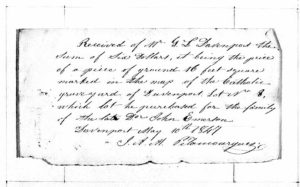 Received of Mr G L Davenport the
Sum of Six Dollars, it being the price
of a piece of ground 16 feet square
marked in the map of the Catholic
graveyard of Davenport Lot No 8,
which lot he purchased for the family
of the late Dr John Emerson
Davenport May 10th 1847
J. A. M. Pelamourgues